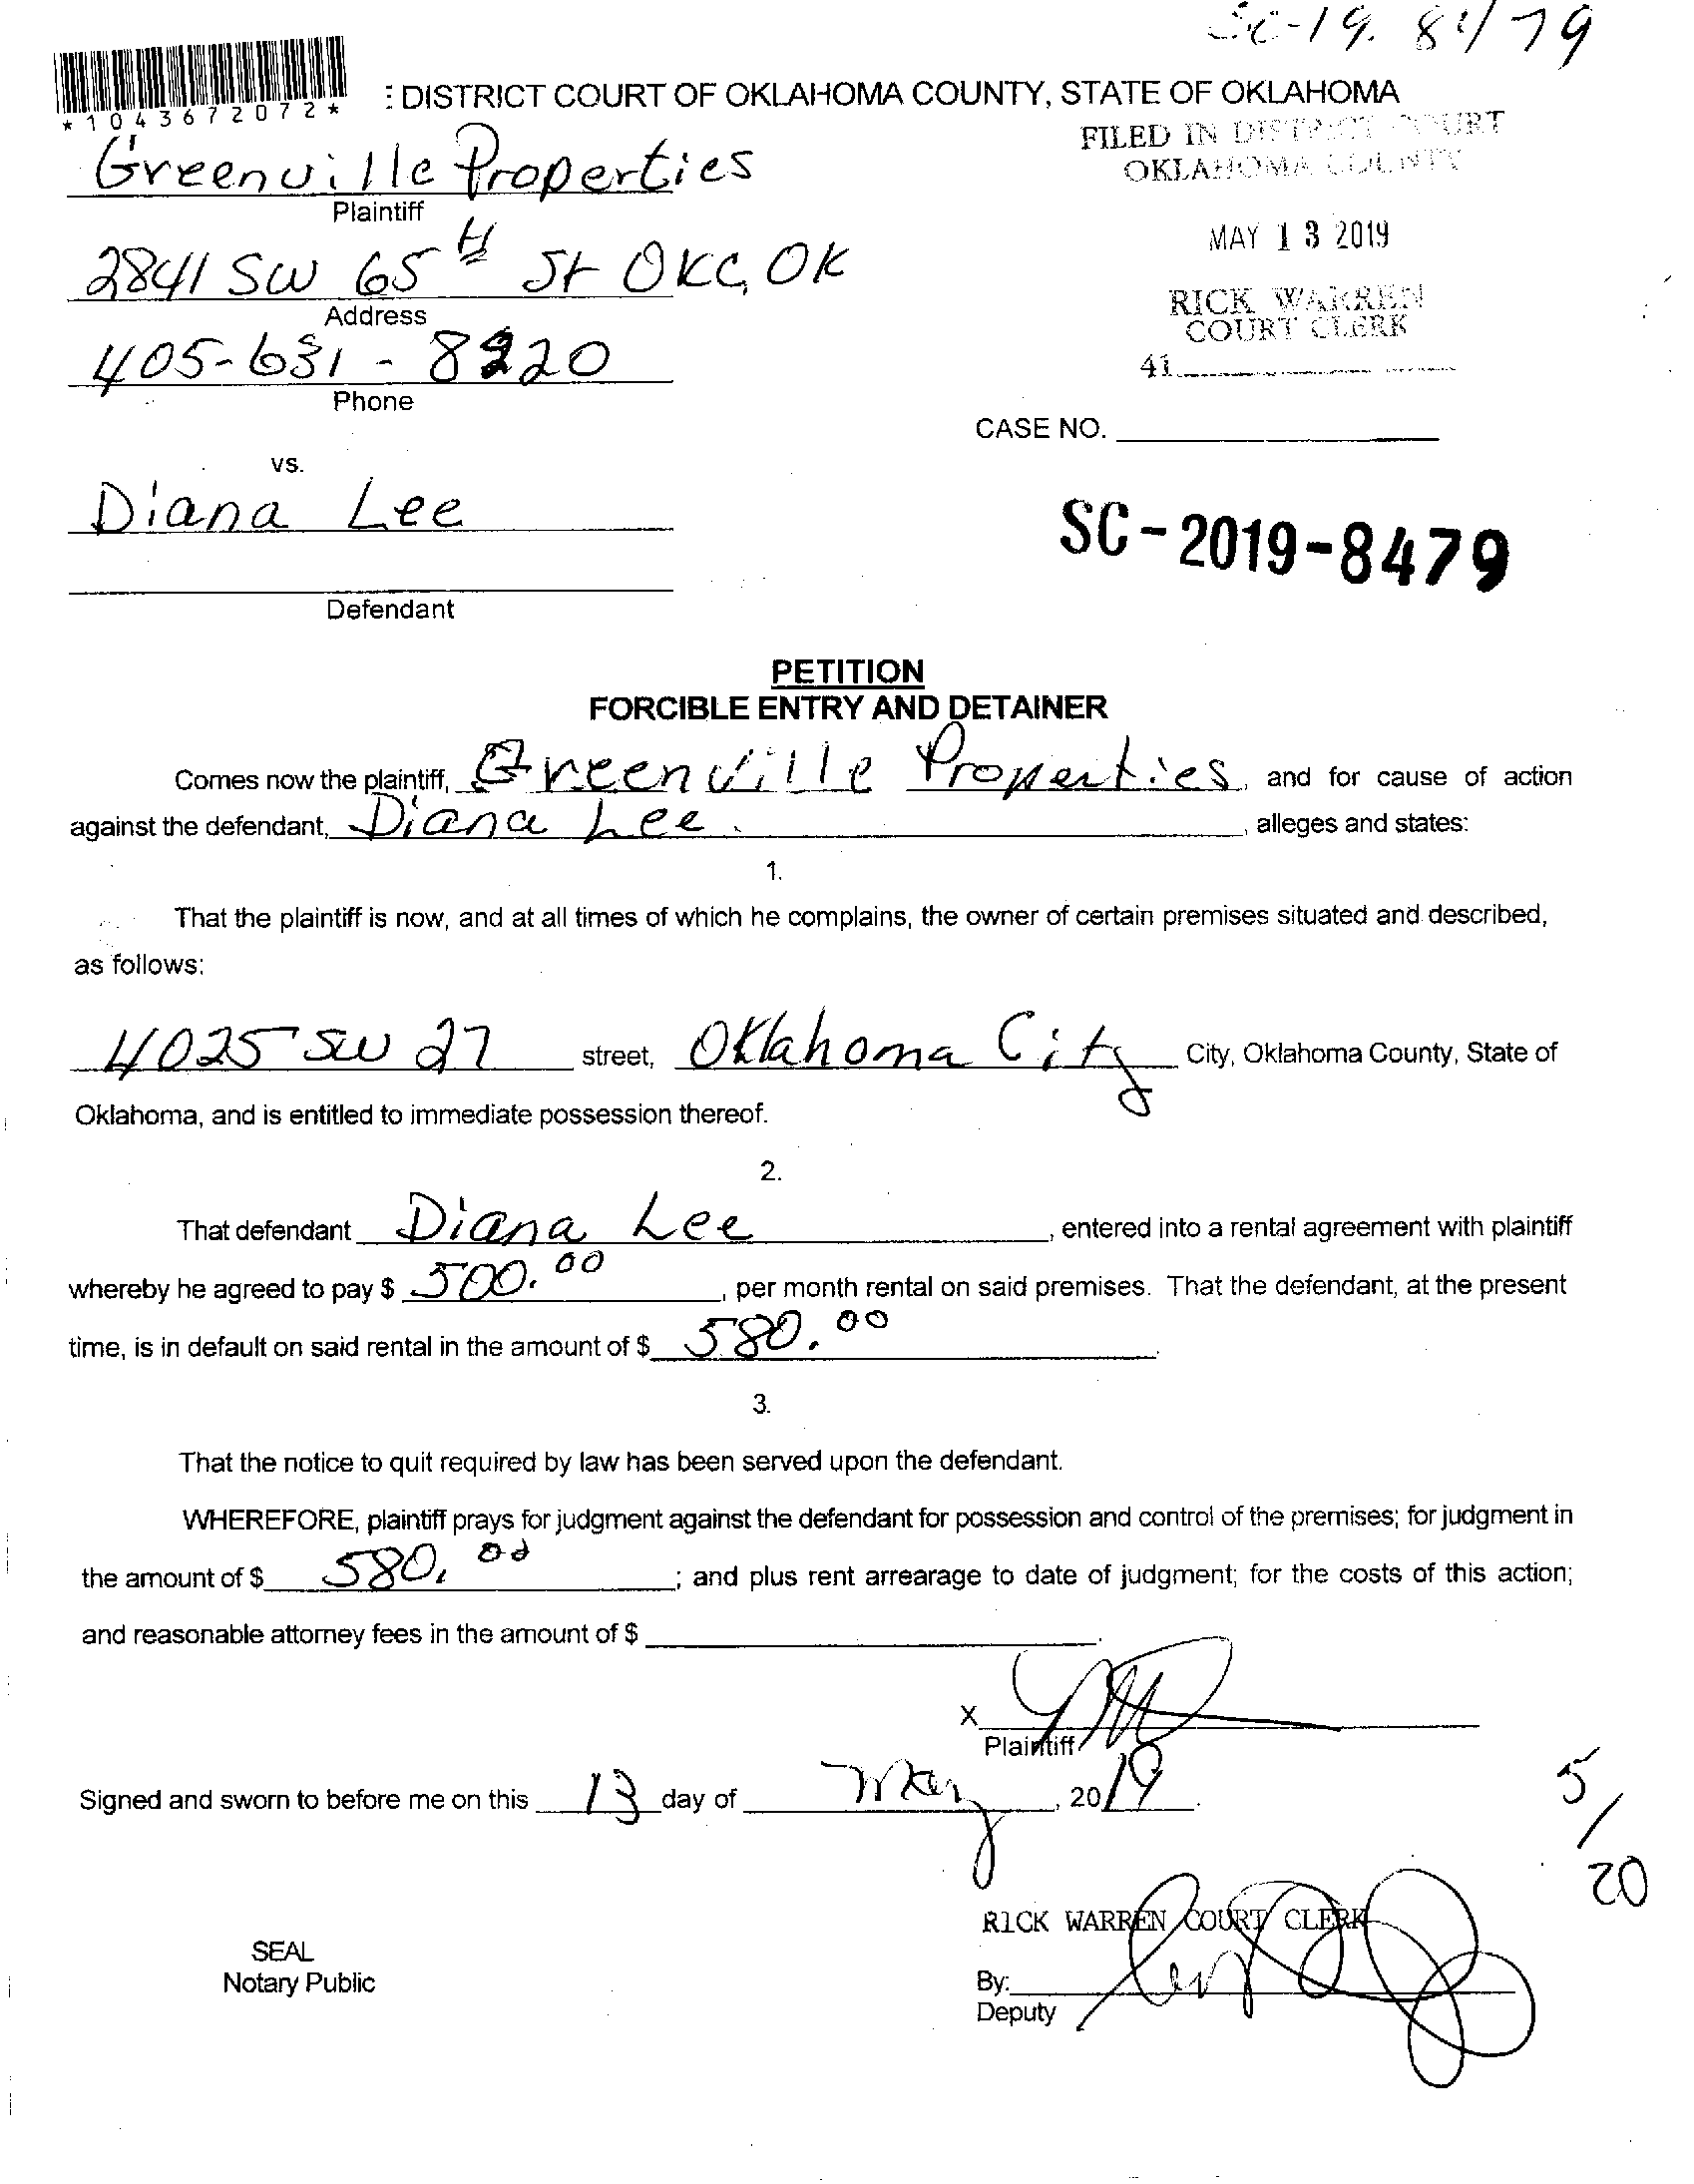 SC-19-8479
*1043672072*
: DISTRICT COURT OF OKLAHOMA COUNTY, STATE OF OKLAHOMA
FILED IN DISTRICT COURT
OKLAHOMA COUNTY
Greenville Properties
Plaintiff
MAY 13 2019
2841 SW 65th St OKC, OK
Address
RICK WARREN
COURT CLERK
405-631-8220
Phone
41
CASE NO.
vs.
Diana Lee
SC-2019-8479
Defendant
PETITION
FORCIBLE ENTRY AND DETAINER
Comes now the plaintiff, Greenville Properties, and for cause of action
against the defendant, Diana Lee, alleges and states:
1.
That the plaintiff is now, and at all times of which he complains, the owner of certain premises situated and described,
as follows:
4025 SW 27 street, Oklahoma City City, Oklahoma County, State of
Oklahoma, and is entitled to immediate possession thereof.
2.
That defendant Diana Lee, entered into a rental agreement with plaintiff
whereby he agreed to pay $ 500.00, per month rental on said premises. That the defendant, at the present
time, is in default on said rental in the amount of $ 580.00.
3.
That the notice to quit required by law has been served upon the defendant.
WHEREFORE, plaintiff prays for judgment against the defendant for possession and control of the premises; for judgment in
the amount of $ 580.00; and plus rent arrearage to date of judgment; for the costs of this action;
and reasonable attorney fees in the amount of $ .
X
Plaintiff
Signed and sworn to before me on this 13 day of May, 2019.
5/20
RICK WARREN COURT CLERK
SEAL
Notary Public
By:
Deputy